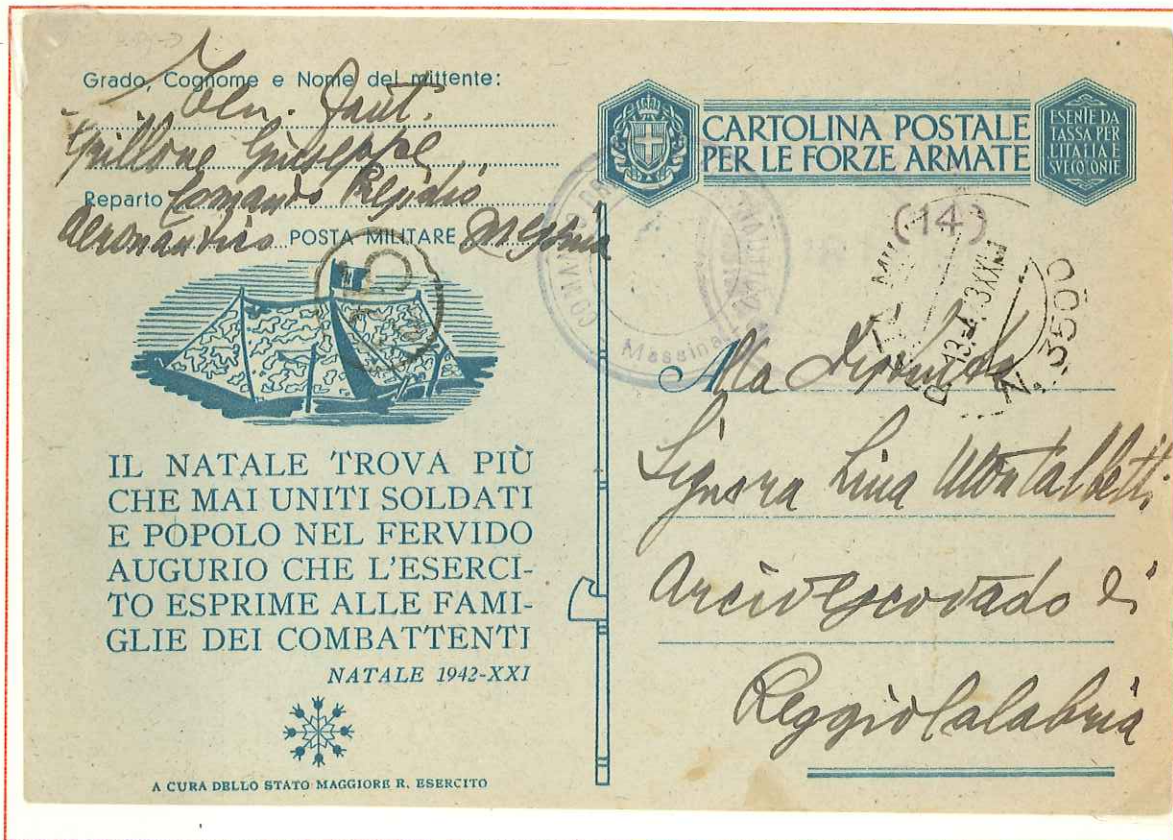 Grado, Cognome e Nome del mittente:
Grillone Giuseppe
Reparto Comando Presidio
Aeronautico POSTA MILITARE Messina
IL NATALE TROVA PIÙ
CHE MAI UNITI SOLDATI
E POPOLO NEL FERVIDO
AUGURIO CHE L'ESERCI-
TO ESPRIME ALLE FAMI-
GLIE DEI COMBATTENTI
NATALE 1942-XXI
A CURA DELLO STATO MAGGIORE R. ESERCITO
CARTOLINA POSTALE
PER LE FORZE ARMATE
ESENTE DA
TASSA PER
L'ITALIA E
SVE COLONIE
(14)
Messina
N. 3500
Alla
Signora Lina Montalbetti
Arcivescovado di
Reggio Calabria